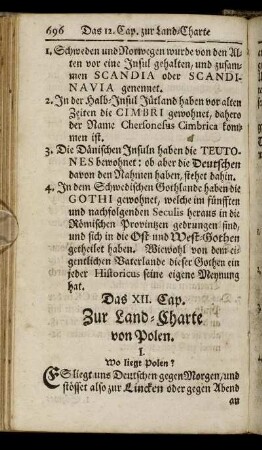 696 Das 12. Cap. zur Land-Charte
1. Schweden und Norwegen wurde von den Al-
ten vor eine Insul gehalten, und zusam-
men SCANDIA oder SCANDI-
NAVIA genennet.
2. In der Halb-Insul Jütland haben vor alten
Zeiten die CIMBRI gewohnet, dahero
der Name Chersonesus Cimbrica kom-
men ist.
3. Die Dänischen Insuln haben die TEUTO-
NES bewohnet: ob aber die Deutschen
davon den Nahmen haben, stehet dahin.
4. In dem Schwedischen Gothlande haben die
GOTHI gewohnet, welche im fünfften
und nachfolgenden Seculis heraus in die
Römischen Provintzen gedrungen sind,
und sich in die Ost und West-Gothen
getheilet haben. Wiewohl von dem ei-
gentlichen Vaterlande dieser Gothen ein
jeder Historicus seine eigene Meynung
hat.
Das XII. Cap.
Zur Land-Charte
von Polen.
I.
Wo liegt Polen?
ES liegt uns Deutschen gegen Morgen, und
stösset also zur Lincken oder gegen Abend
an